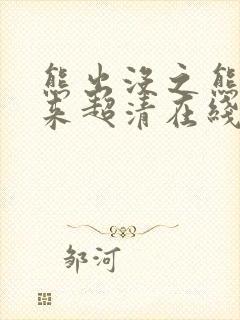 熊出没之熊
来超清在线
邹河